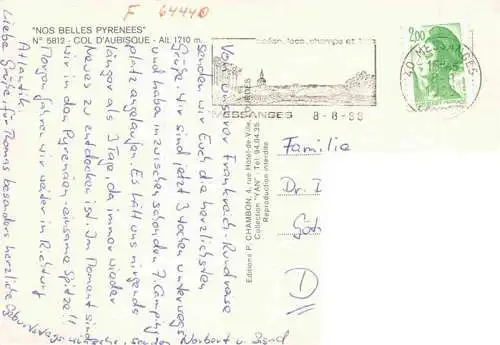 F 64440
"NOS BELLES PYRENEES"
N° 5812 - COL D'AUBISQUE - Alt. 1710 m.
MESSANGES 8-8-88
2,00
40 MESSANGES
Von unserer Frankreich-Rundreise
senden wir Euch die herzlichsten
Grüße. Wir sind jetzt 3 Wochen unterwegs
und haben inzwischen schon den 7. Camping-
platz angelaufen. Es hält uns nirgends
länger als 3 Tage, da immer wieder
Neues zu entdecken ist. Im Moment sind
wir in den Pyrenäen - einsame Spitze!!
Morgen fahren wir weiter in Richtung
Atlantik.
Liebe Grüße, für Thomas besonders herzliche
Geburtstagswünsche, senden
Norbert u.
Editions P. CHAMBON, 4, rue Hôtel-de-Ville, LOURDES
Collection "YAN" - Tél. 94.04.35
Reproduction interdite
Familie
Dr. I
Göt
D